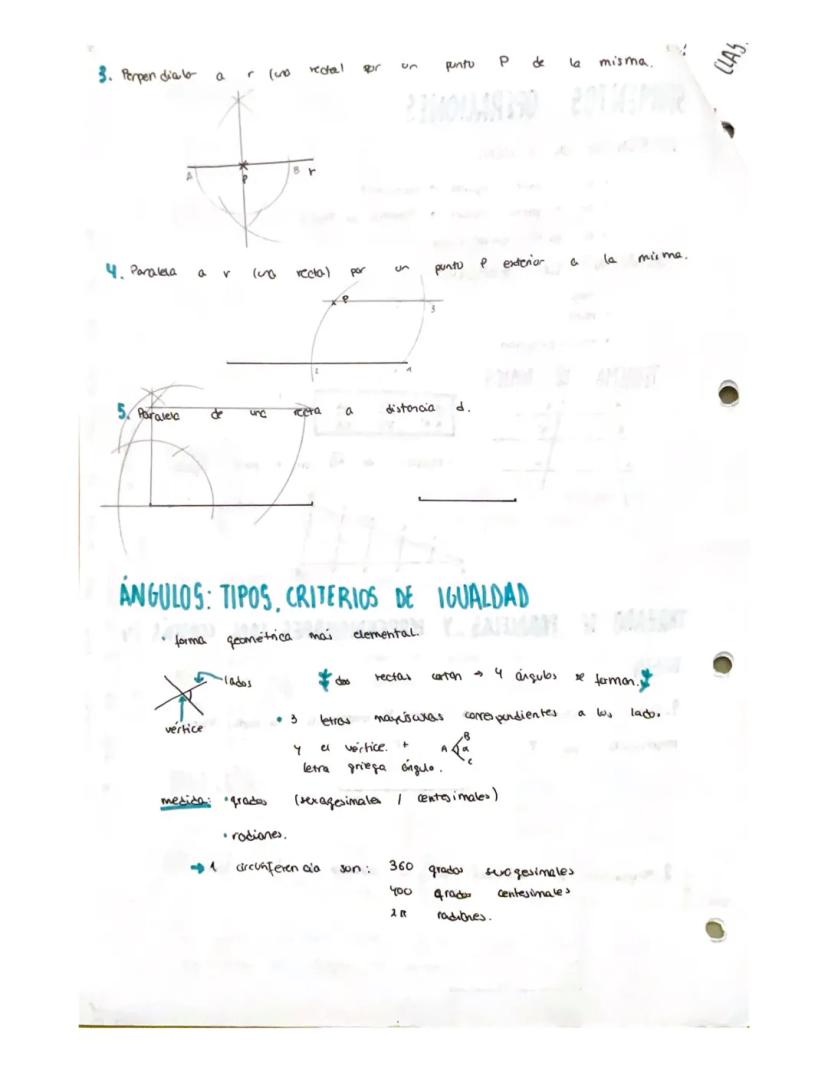 3. Perpendicular a r (una recta) por un punto P de la misma.
CLAS.
A P B r
4. Paralela a r (una recta) por un punto P exterior a la misma.
P
3
2 1
5. Paralela de una recta a distancia d.
ÁNGULOS: TIPOS, CRITERIOS DE IGUALDAD
• forma geométrica más elemental.
lados
dos rectas cortan → 4 ángulos se forman.
vértice
• 3 letras mayúsculas correspondientes a los lado.
y el vértice. + A B α C
letra griega ángulo.
medida: • grados (sexagesimales / centesimales)
• radianes.
→ 1 circunferencia son: 360 grados sexagesimales
400 grados centesimales
2π radianes.